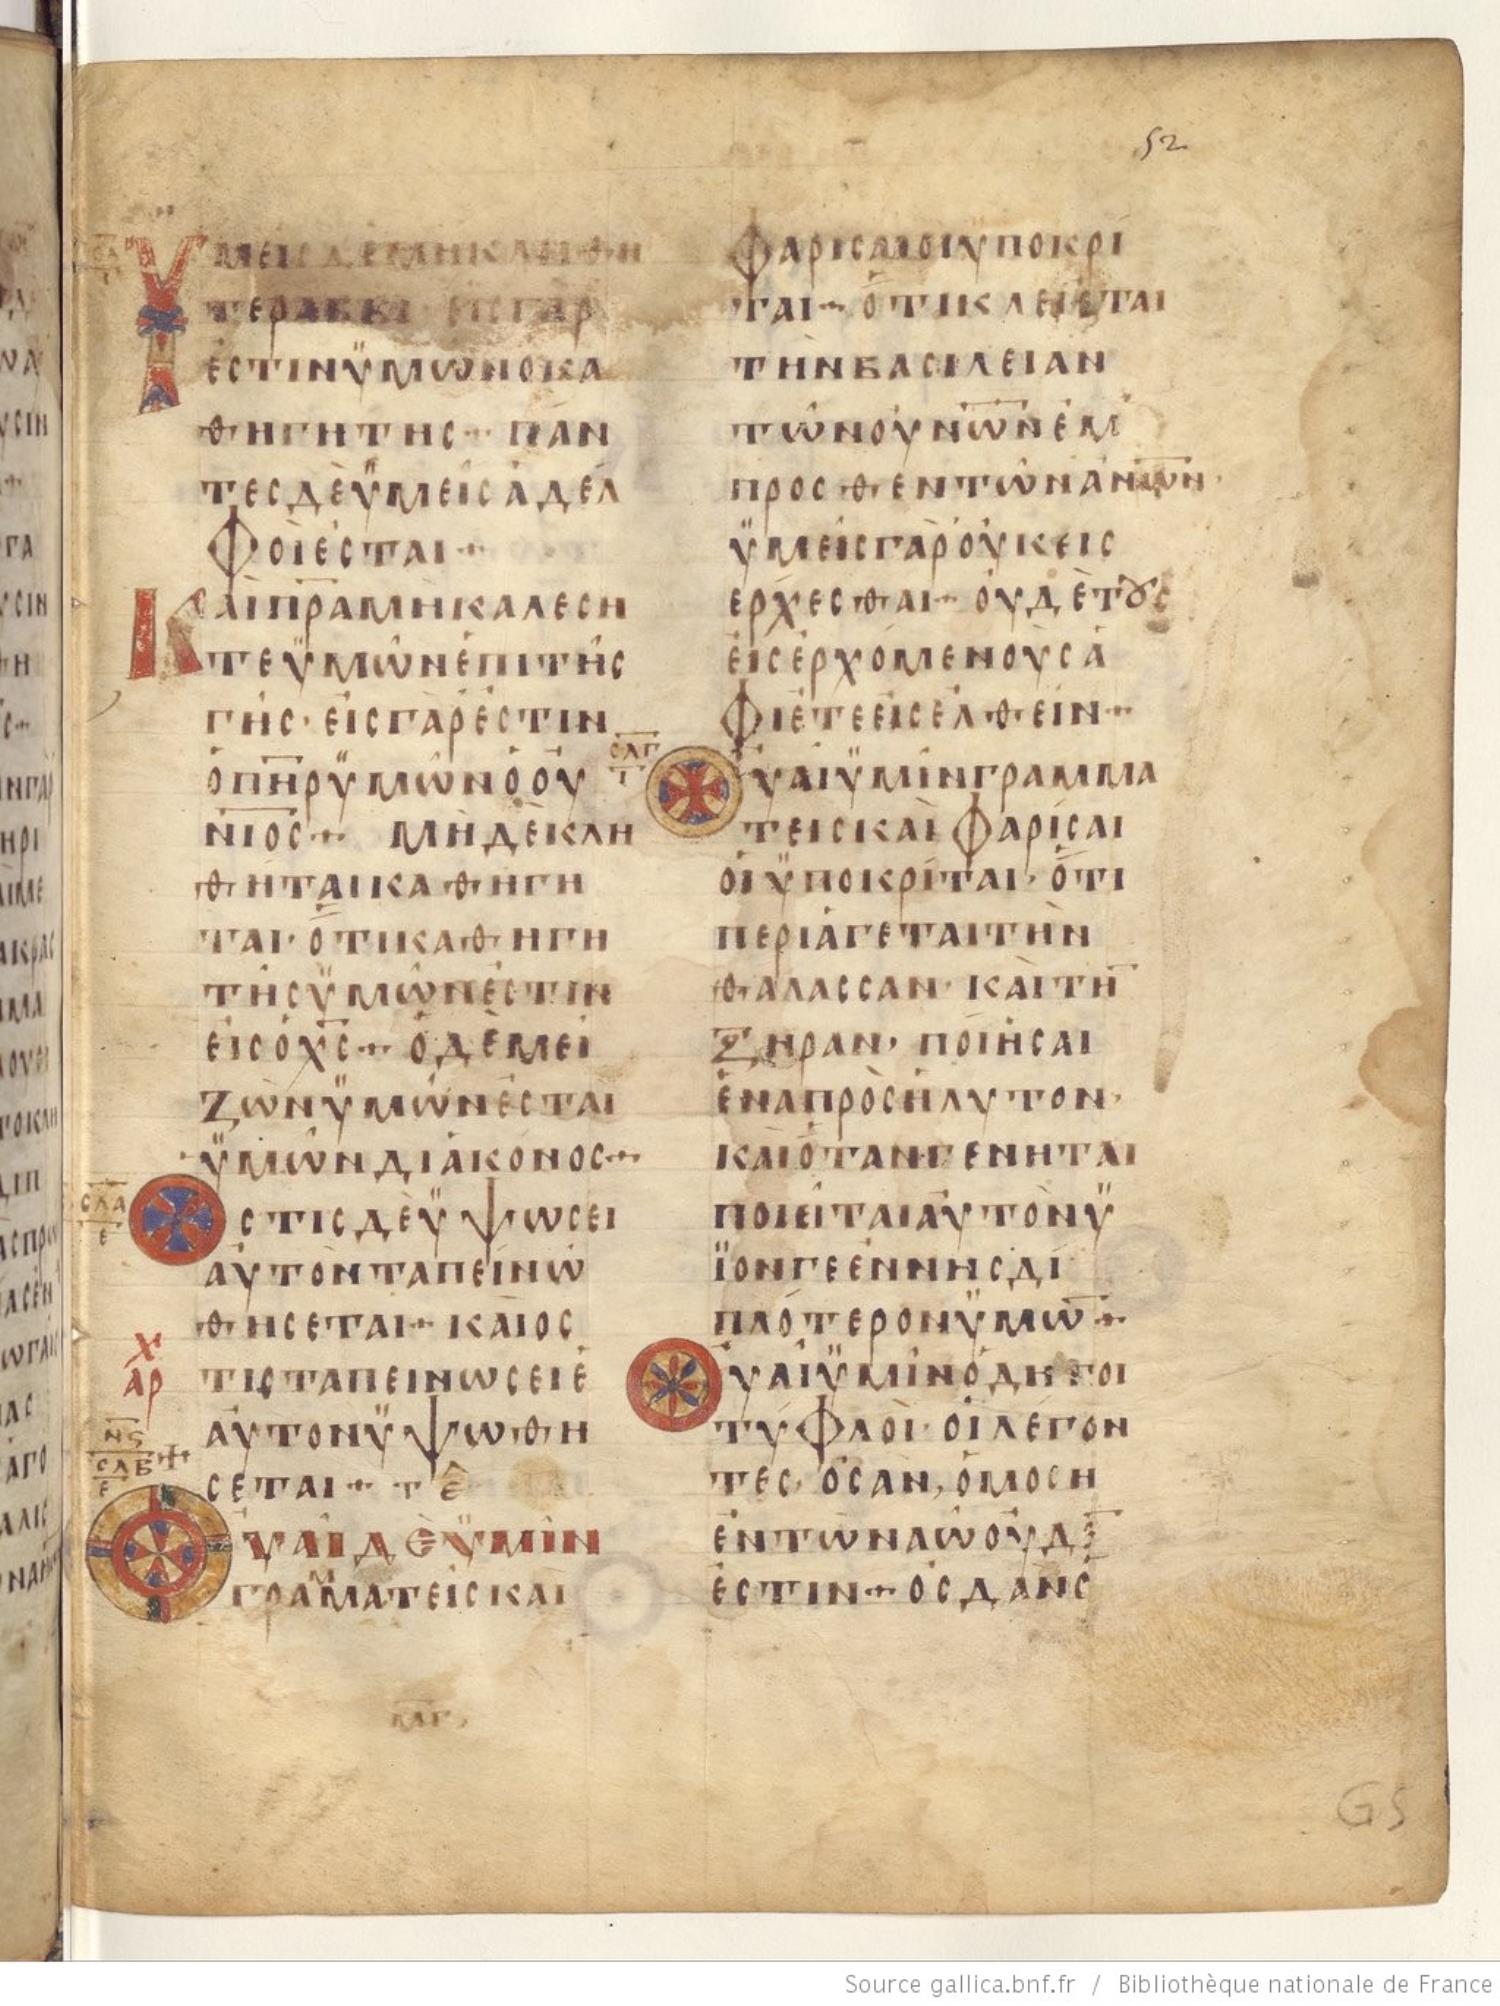 52
ΥΜΕΙСΔΕΜΗΚΛΗΘΗ
ΤΕΡΑΒΒΙ ΕΙСΓΑΡ
ΕСΤΙΝΫΜΩΝΟΚΑ
ΘΗΓΗΤΗС·· ΠΑΝ
ΤΕСΔΕΫΜΕΙСΑΔΕΛ
ΦΟΙΕСΤΑΙ·+
ΚΑΙΠΡΑΜΗΚΑΛΕСΗ
ΤΕΫΜΩΝΕΠΙΤΗС
ΓΗС·ΕΙСΓΑΡΕСΤΙΝ
ΟΠΗΡΫΜΩΝΟΟΥ
ΝΙΟС·+ ΜΗΔΕΚΛΗ
ΘΗΤΑΙΚΑΘΗΓΗ
ΤΑΙ·ΟΤΙΚΑΘΗΓΗ
ΤΗСΫΜΩΝΕСΤΙΝ
ΕΙСΟΧС·+ ΟΔΕΜΕΙ
ΖΩΝΫΜΩΝΕСΤΑΙ
ΫΜΩΝΔΙΑΚΟΝΟС·+
СΛΑ
Ε
ΟСΤΙСΔΕΫΨΩСΕΙ
ΑΥΤΟΝΤΑΠΕΙΝΩ
ΘΗСΕΤΑΙ·+ΚΑΙΟС
ΤΙСΤΑΠΕΙΝΩСΕΙΕ
ΑΥΤΟΝΫΨΩΘΗ
СΕΤΑΙ·+ ΤΕ
Χ
ΑΡ
ΝϚ
СΛΒ
Ε
ΟΥΑΙΔΕΫΜΙΝ
ΓΡΑΜΜΑΤΕΙСΚΑΙ
ΦΑΡΙСΑΙΟΙΥΠΟΚΡΙ
ΤΑΙ·+ΟΤΙΚΛΕΙΕΤΑΙ
ΤΗΝΒΑСΙΛΕΙΑΝ
ΤΩΝΟΥΝΩΝΕΜ
ΠΡΟСΘΕΝΤΩΝΑΝΩΝ·
ΫΜΕΙСΓΑΡΟΥΚΕΙС
ΕΡΧΕСΘΑΙ·+ΟΥΔΕΤȣС
ΕΙСΕΡΧΟΜΕΝΟΥСΑ
ΦΙΕΤΕΕΙСΕΛΘΕΙΝ·+
СΛΓ
Τ
ΟΥΑΙΫΜΙΝΓΡΑΜΜΑ
ΤΕΙСΚΑΙΦΑΡΙСΑΙ
ΟΙΫΠΟΚΡΙΤΑΙ·ΟΤΙ
ΠΕΡΙΑΓΕΤΑΙΤΗΝ
ΘΑΛΑССΑΝ·ΚΑΙΤΗ̅
ΞΗΡΑΝ·ΠΟΙΗСΑΙ
ΕΝΑΠΡΟСΗΛΥΤΟΝ·
ΚΑΙΟΤΑΝΓΕΝΗΤΑΙ
ΠΟΙΕΙΤΑΙΑΥΤΟΝΫ
ΪΟΝΓΕΕΝΝΗСΔΙ
ΠΛΟΤΕΡΟΝΫΜΩ̅·+
ΟΥΑΙΫΜΙΝΟΔΗΓΟΙ
ΤΥΦΛΟΙ·ΟΙΛΕΓΟΝ
ΤΕС·ΟСΑΝ,ΟΜΟСΗ
ΕΝΤΩΝΑΩΟΥΔΕ
ΕСΤΙΝ·+ΟСΔΑΝС
G5
Source gallica.bnf.fr / Bibliothèque nationale de France